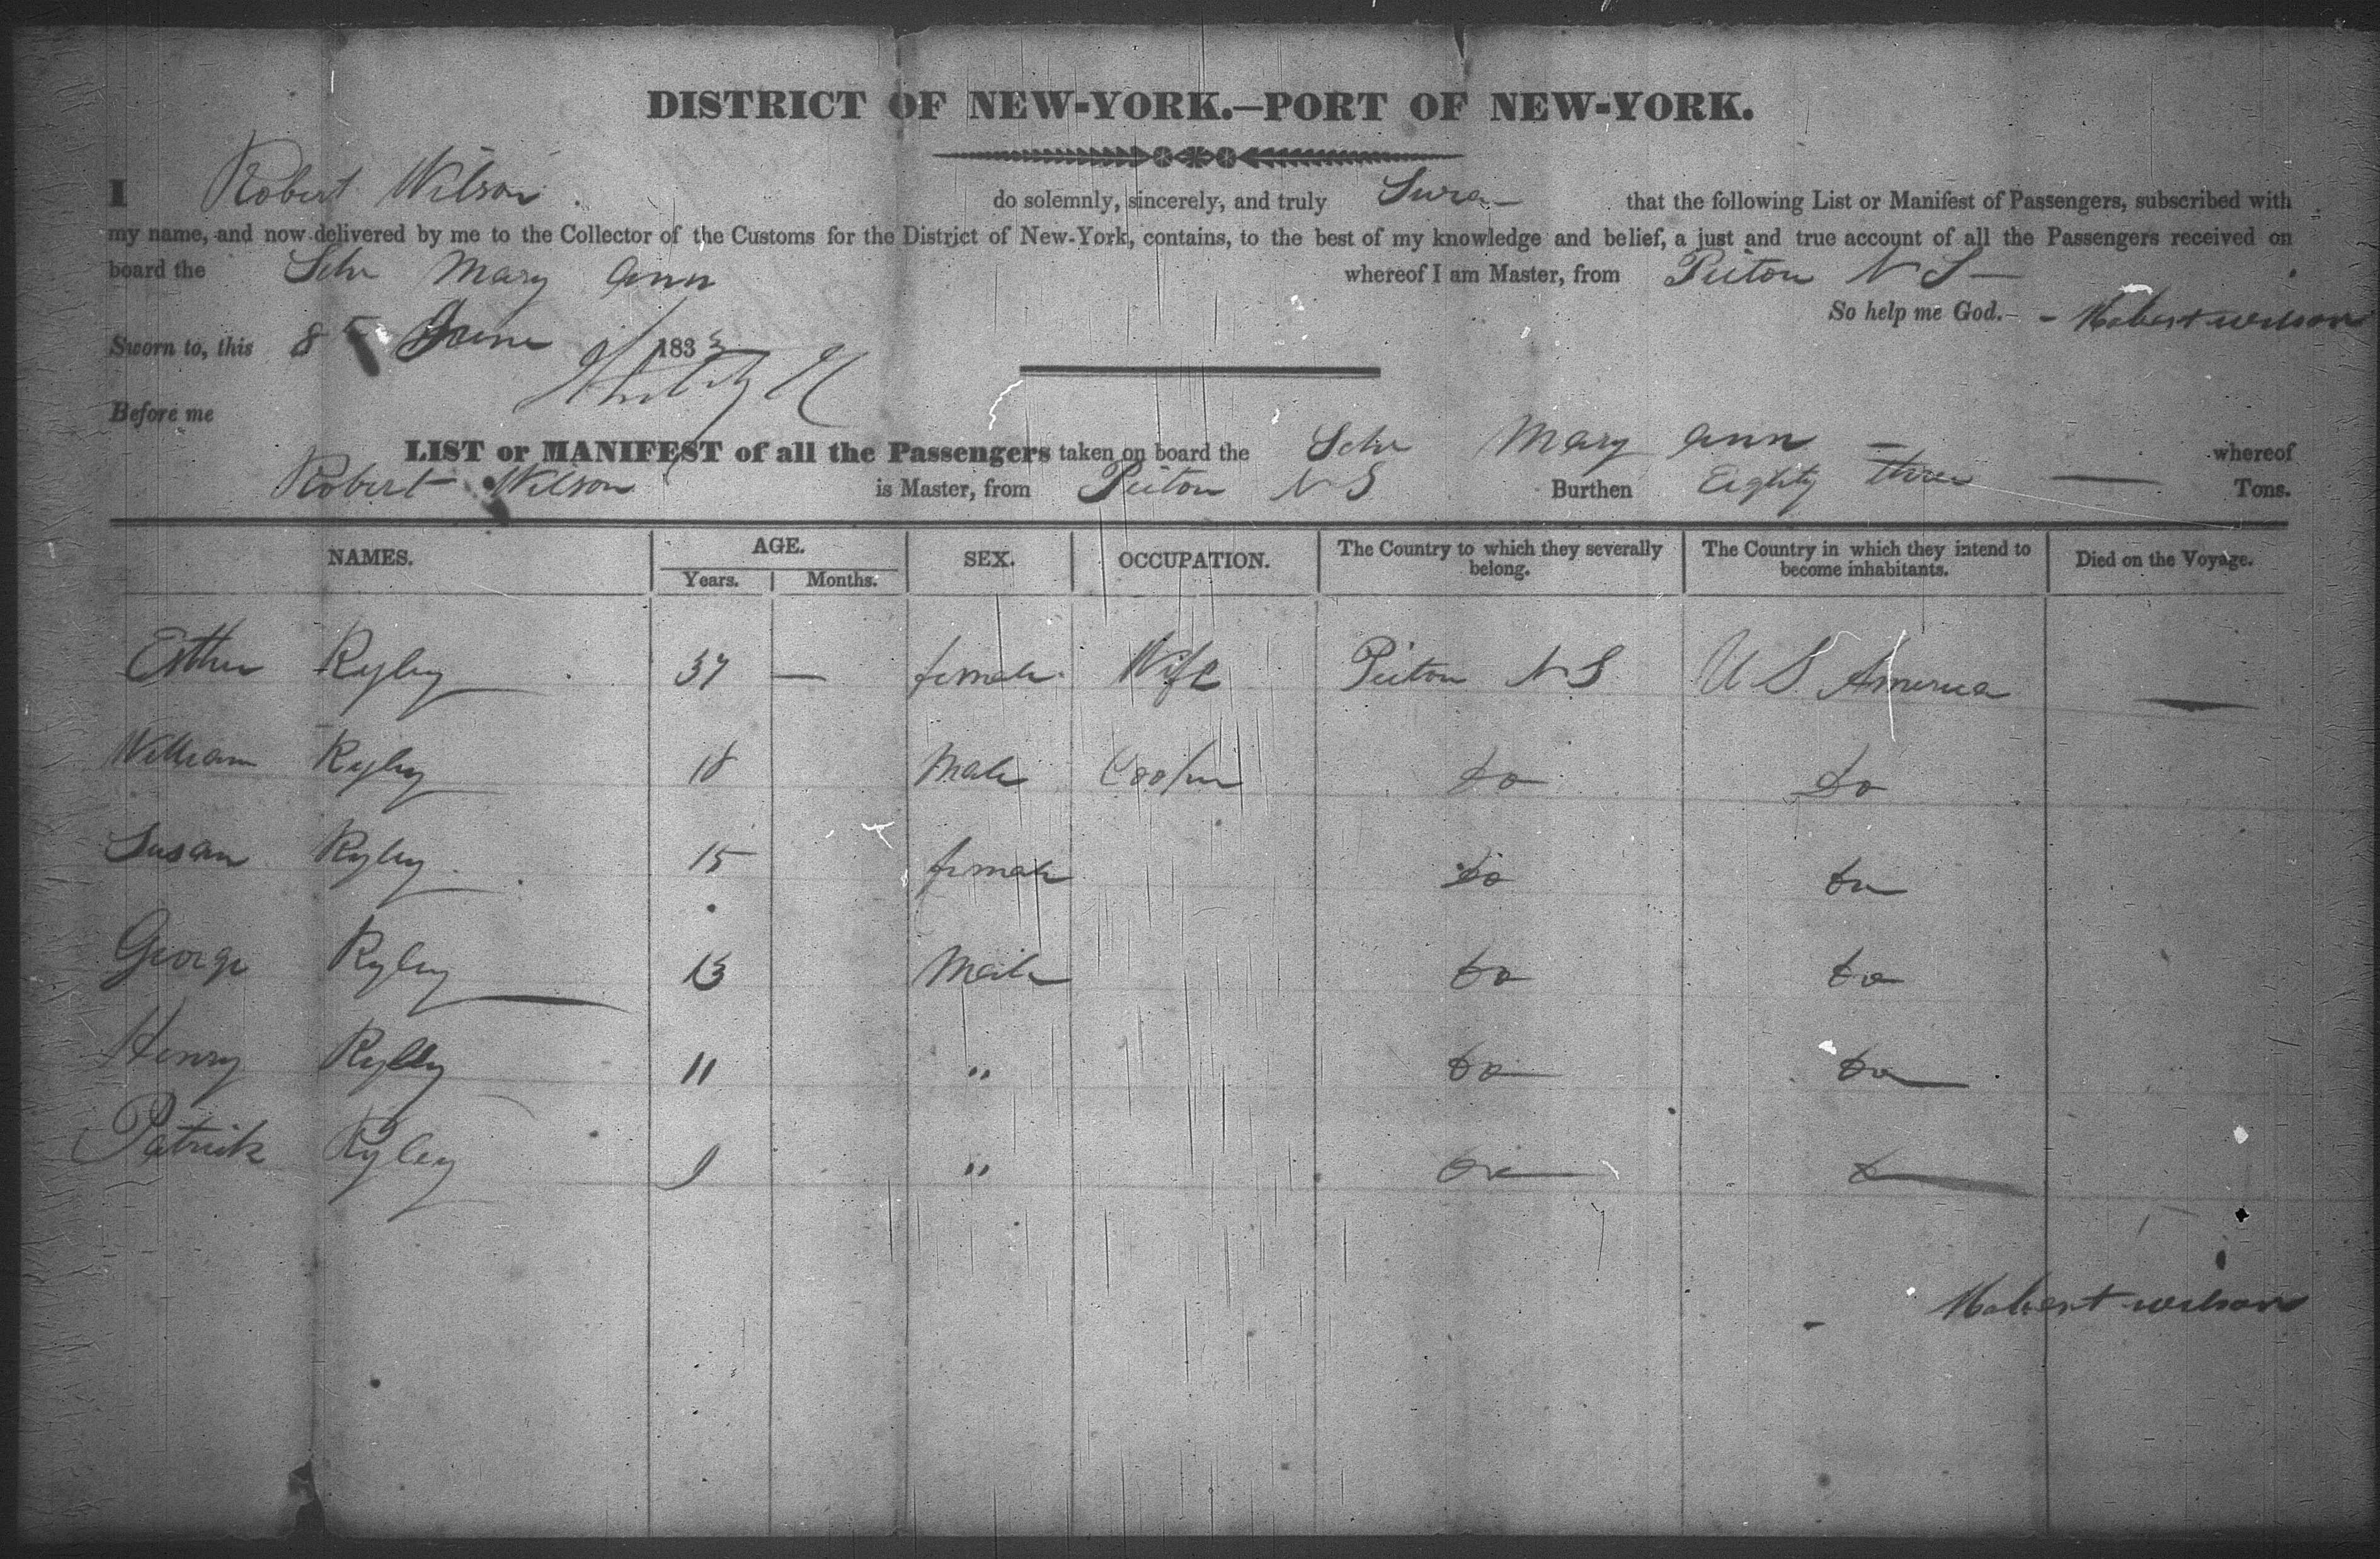 DISTRICT OF NEW-YORK.—PORT OF NEW-YORK.
I Robert Wilson do solemnly, sincerely, and truly Swear that the following List or Manifest of Passengers, subscribed with
my name, and now delivered by me to the Collector of the Customs for the District of New-York, contains, to the best of my knowledge and belief, a just and true account of all the Passengers received on
board the Schr Mary Ann whereof I am Master, from Picton N S
So help me God.— Robert wilson
Sworn to, this 8 June 1833
Before me
LIST or MANIFEST of all the Passengers taken on board the Schr Mary Ann whereof
Robert Wilson is Master, from Picton N S Burthen Eighty three Tons.
NAMES. AGE. Years. Months. SEX. OCCUPATION. The Country to which they severally belong. The Country in which they intend to become inhabitants. Died on the Voyage.
Esther Ryley 37 — female Wife Picton N S U S America —
William Ryley 18 Male Cooper do do
Susan Ryley 15 female do do
George Ryley 13 Male do do
Henry Ryley 11 " do do
Patrick Ryley 9 " do do
Robert wilson